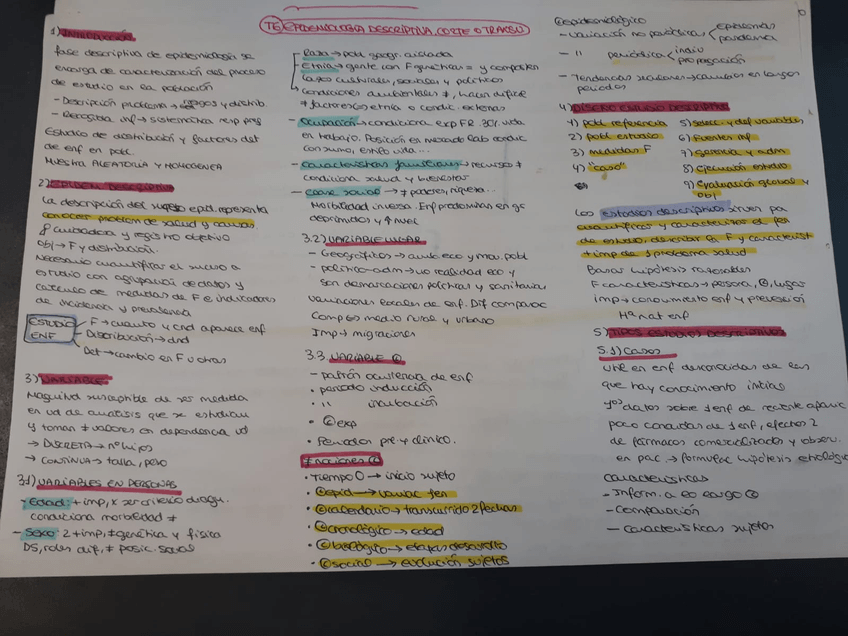 T6 EPIDEMIOLOGÍA DESCRIPTIVA, CORTE O TRANSV
1) INTRODUCCIÓN
fase descriptiva de epidemiología se
encarga de caracterización del proceso
de estudio en la población
- Descripción problema → y distrib.
- Recogida inf → sistemática
Estudio de distribución y factores det
de enf en pobl.
Muestra ALEATORIA Y HOMOGÉNEA
2) EPIDEM. DESCRIPTIVA
La descripción del epid. representa
conocer problem de salud y causas
y registro objetivo
Obj → F y distribución.
Necesario cuantificar el suceso a
estudio con agrupación de datos y
cálculo de medidas de F e indicadores
de incidencia y prevalencia
ESTUDIO ENF
F → cuanto y cnd aparece enf
Distribución → dnd
Det → cambio en F u otras
3) VARIABLE
Magnitud susceptible de ser medida
en ud de análisis que se estudian
y toman ≠ valores en dependencia ud
→ DISCRETA → nº hijos
→ CONTINUA → talla, peso
3.1) VARIABLES EN PERSONAS
- Edad: + imp, x ser criterio diagn.
condiciona morbilidad ≠
- Sexo: 2 + imp, ≠ genética y física
DS, roles dif, ≠ posic. social
- Raza → pobl geogr. aislada
- Etnia → gente con F genéticas = y comparten
lazos culturales, sociales y políticos
↳ condiciones ambientales ≠, hacen difícil
≠ factores (o etnia o condic. externas
- Ocupación → condiciona exp FR. 30% vida
en trabajo. Posición en mercado lab condic
consumo, estilo vida...
- Características familiares → recursos ≠
condiciona salud y bienestar
- Clase social → ≠ poder, riqueza...
Morbilidad inversa. Enf predominan en gs
deprimidos y ↑ nivel
3.2) VARIABLE LUGAR
- Geográficos → amb. eco y mov. pobl
- político-adm → no realidad eco y
son demarcaciones políticas y sanitarias
variaciones locales de enf. Dif comparac
Complejo medio rural y urbano
Imp → migraciones
3.3. VARIABLE t
- patrón ocurrencia de enf
• periodo inducción
• " incubación
• t exp
• Periodos pre y clínico.
≠ nociones t
• Tiempo 0 → inicio sujeto
• t epid → fen
• t calendario → transcurrido 2 fechas
• t cronológico → edad
• t biológico → etapas desarrollo
• t social → evolución sujetos
t epidemiológico
- Variación no periódicas < epidemias
pandemia
- " periódica < inicio
propagación
- Tendencias seculares → cambios en largos
periodos
4) DISEÑO ESTUDIO DESCRIPTIVO
1) pobl referencia
2) pobl estudio
3) medidas F
4) "caso"
5) selecc. y def variables
6) Fuentes inf
7) Gerencia y adm
8) Ejecución estudio
9) Evaluación global y
obj
Los estudios descriptivos sirven pa
cuantificar y caracterizar el fen
de estudio, describir en F y caracterist
+ imp de 1 problema salud
Basar hipótesis razonables
F características → persona, t, lugar
imp → conocimiento enf y prevención
Ha nat enf
5) TIPOS ESTUDIOS DESCRIPTIVOS
5.1) Casos
util en enf desconocidas de las
que hay conocimiento inicial
datos sobre 1 enf de reciente aparic
poco conocidas de 1 enf, efectos 2
de fármacos comercializados y observ.
en pac. → formular hipótesis etiológica
características
- Inform. a lo largo t
- Comparación
- Características sujetos